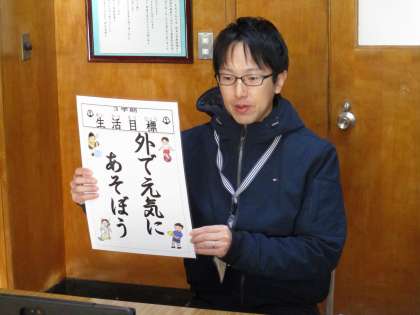 3学期
生活目標
外で元気に
あそぼう